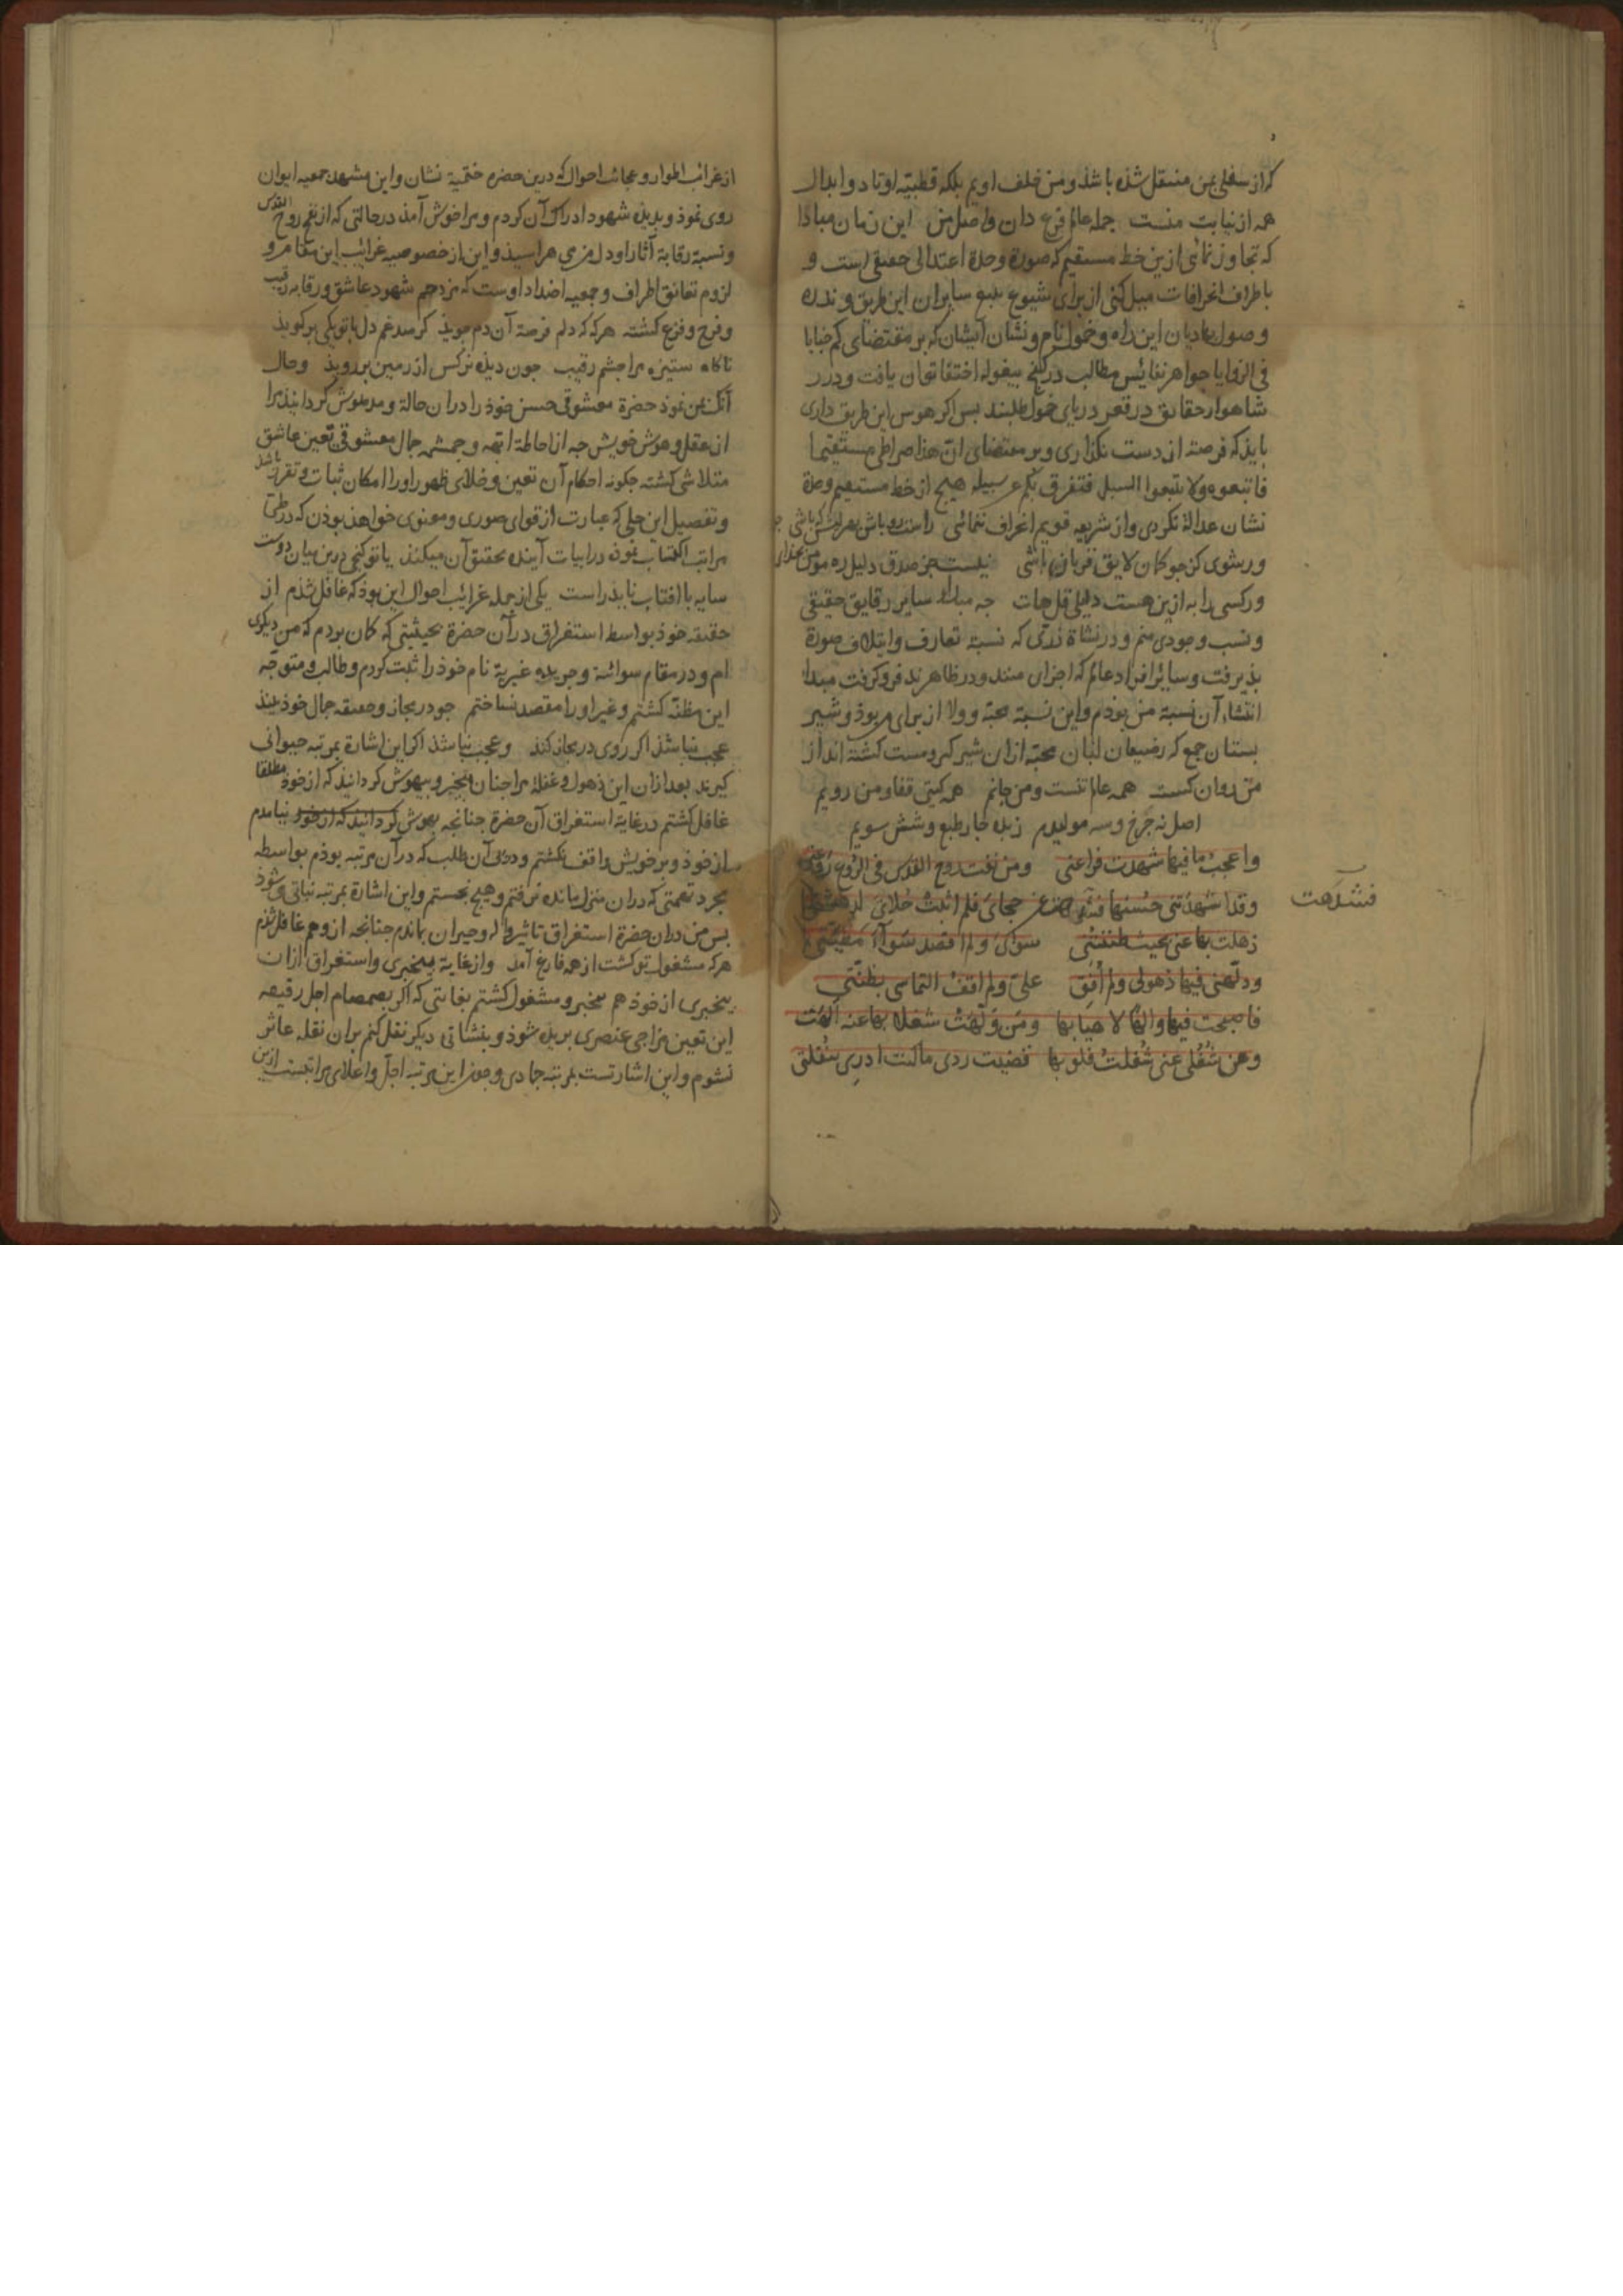 که از سفلی بمن منتقل شده باشد و من خلف اویم بلکه قطبیّه اوتاد و ابدال
همه از نیابت منست جمله عالم فرع دان و اصل من این زمان مبادا
که تجاوز نمائی ازین خط مستقیم که صورة وحدة اعتدالی حقیقی است و
باطراف انحرافات میل کنی از برای شیوع سایران این طریق و ندره
وصول هادیان این راه و خمول نام و نشان ایشان که بر مقتضای کم خبایا
فی الزوایا جواهر نفائس مطالب در کنج بیغوله اختفا توان یافت و درر
شاهوار حقائق در قعر دریای خمول طلبند بس اکر هوس این طریق داری
باید که فرصة از دست نکذاری و بر مقتضای انّ هذا صراطی مستقیما
فاتبعوه ولا تتبعوا السبل فتفرق بکم عن سبیله هیچ از خط مستقیم وحدة
نشان عدالة نکردی و از شریعه قویم انحراف ننمائی راست رو باش
ور شوی کژ جو کمان لایق قربان باشی نیست جز صدق دلیل ره مومن
ور کسی را به ازین هست دلیلی قل هات جه سایر رقایق حقیقی
و نسب وجودی منم و در نشاة ذری که نسبة تعارف و ایتلاف صورة
بذیرفت و سائر افراد عالم که اجزاء منند و در ظاهر ند فرو کرفت مبدا
انتشاء آن نسبة من بوذم و این نسبة محبّة و ولا از برای من بوذ و شیر
بستان جمع که رضیعان لبان محبّة ازان شیر کیر و مست کشته اند از
من روان کست همه عالم تنست و من جانم همه کیتی قفا و من رویم
اصل نه جرخ و سه موالیدم زبده جار طبع و شش سویم
واعجبُ ما فیها شهدت فراعنی ومن نفث روح القدس فی الرُوع رَوعتی
وقد اشهدتنی حُسنها فشدهت عن حجای فلم اثبت حُلای لدهشتی
فشدهت
ذهلت بها عنی بحیث ظننتُنی سوای ولم اقصد سَوآءَ مَظِنّتی
ودلّهنی فیها ذهولی ولم اُفِق علیّ ولم اقفُ التماسی بظنّتی
فاصبحت فیها والهًا لاهیا بها ومَن وَلّهَتْ شغلا بها عنه اَلْهَت
وعن شُغُلی عنی شُغلتُ فلو بها قضیت ردی ما کنت ادرِی بنُقلتی
از غرائب اطوار و عجائب احوال که درین حضره ختمیة نشان و این مشهد جمعیه ایوان
روی نموذ و بدیذه شهود ادراک آن کردم و مرا خوش آمذ در حالتی که از نفخ روح القدس
و نسبة رقابة آثار او دل من می هراسیذ و این از خصوصیه غرائب این مقام و
لزوم تعانق اطراف و جمعیه اضداد اوست که مزدحم شهود عاشق و رقابه رقیب
و فرح و فزع کشته هر که که دلم فرصة آن دم جوید کز صد غم دل با تو یکی بر کویذ
ناکاه ستیزه مرا جشم رقیب جون دیذه نرکس از زمین بر رویذ و حال
آنک بمن نموذ حضرة معشوقی حسن خوذ را در ان حالة و مدهوش کردانیذ مرا
از عقل و هوش خویش جه از احاطة ابهه و جمال معشوقی تعین عاشق
متلاشی کشته جکونه احکام آن تعین و خلای ظهور او را امکان ثبات و تقرر باشد
و تفصیل این حلی که عبارت از قوای صوری و معنوی خواهذ بوذن که در طیّ
مراتب اکتساب نموده در ابیات آینده تحقیق آن میکنذ یا تو کنجی درین میان یا دوست
سایه با افتاب نابذیراست یکی از جمله غرائب احوال این بوذ که غافل شذم از
حقیقه خوذ بواسطه استغراق در آن حضرة بحیثیتی که کمان بردم که من دیکری
ام و در مقام سوائیة و جریده غیریة نام خوذ را ثبت کردم و طالب و متوجّه
این مظنّه کشتم و غیر او را مقصد نساختم جو در مجاز و حقیقه جمال خوذ بینذ
عجب نباشذ اکر روی در مجاز کند و عجب نباشذ اکر این اشارة بمرتبه حیوانی
کیرند بعد ازان این ذهول و غفلة مرا جنان بیخبر و بیهوش کردانیذ که از خوذ مطلقا
غافل کشتم در غایة استغراق آن حضرة جنانجه بهوش کردانید که از خود نیامدم
از خوذ و بر خویش واقف نکشتم و در بی آن طلب که در آن مرتبه بوذم بواسطه
مجرد تهمتی که دران منزل مانده نرفتم و هیچ نجستم و این اشارة بمرتبه نباتی می شوذ
بس من دران حضرة استغراق تاثیر واله و حیران بماندم جنانجه از وهم غافل شذم
هر که مشغول تو کشت از همه فارغ آمد و از غایة بیخبری و استغراق ازان
بیخبری از خوذ هم بیخبر و مشغول کشتم بغایتی که اکر بصمصام اجل رقیقه
این تعین مزاجی عنصری بریذه شوذ و بنشاتی دیکر نقل کنم بران نقله عاثر
نشوم و این اشارتست بمرتبه جمادی و جون این مرتبه اجلّ و اعلای مراتبست ازین